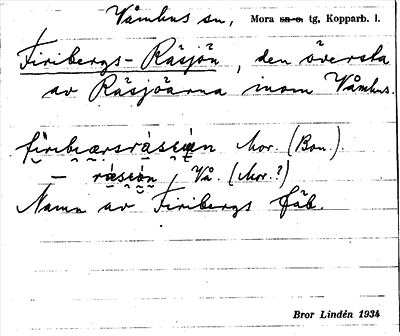 Våmhus sn, Mora sn o. tg, Kopparb. l.
Firibergs-Råsjön, den översta
av Råsjöarna inom Våmhus.
Mor. (Bon.).
— Vå. (Mor.?)
Namn av Firibergs fäb.
Bror Lindén 1934